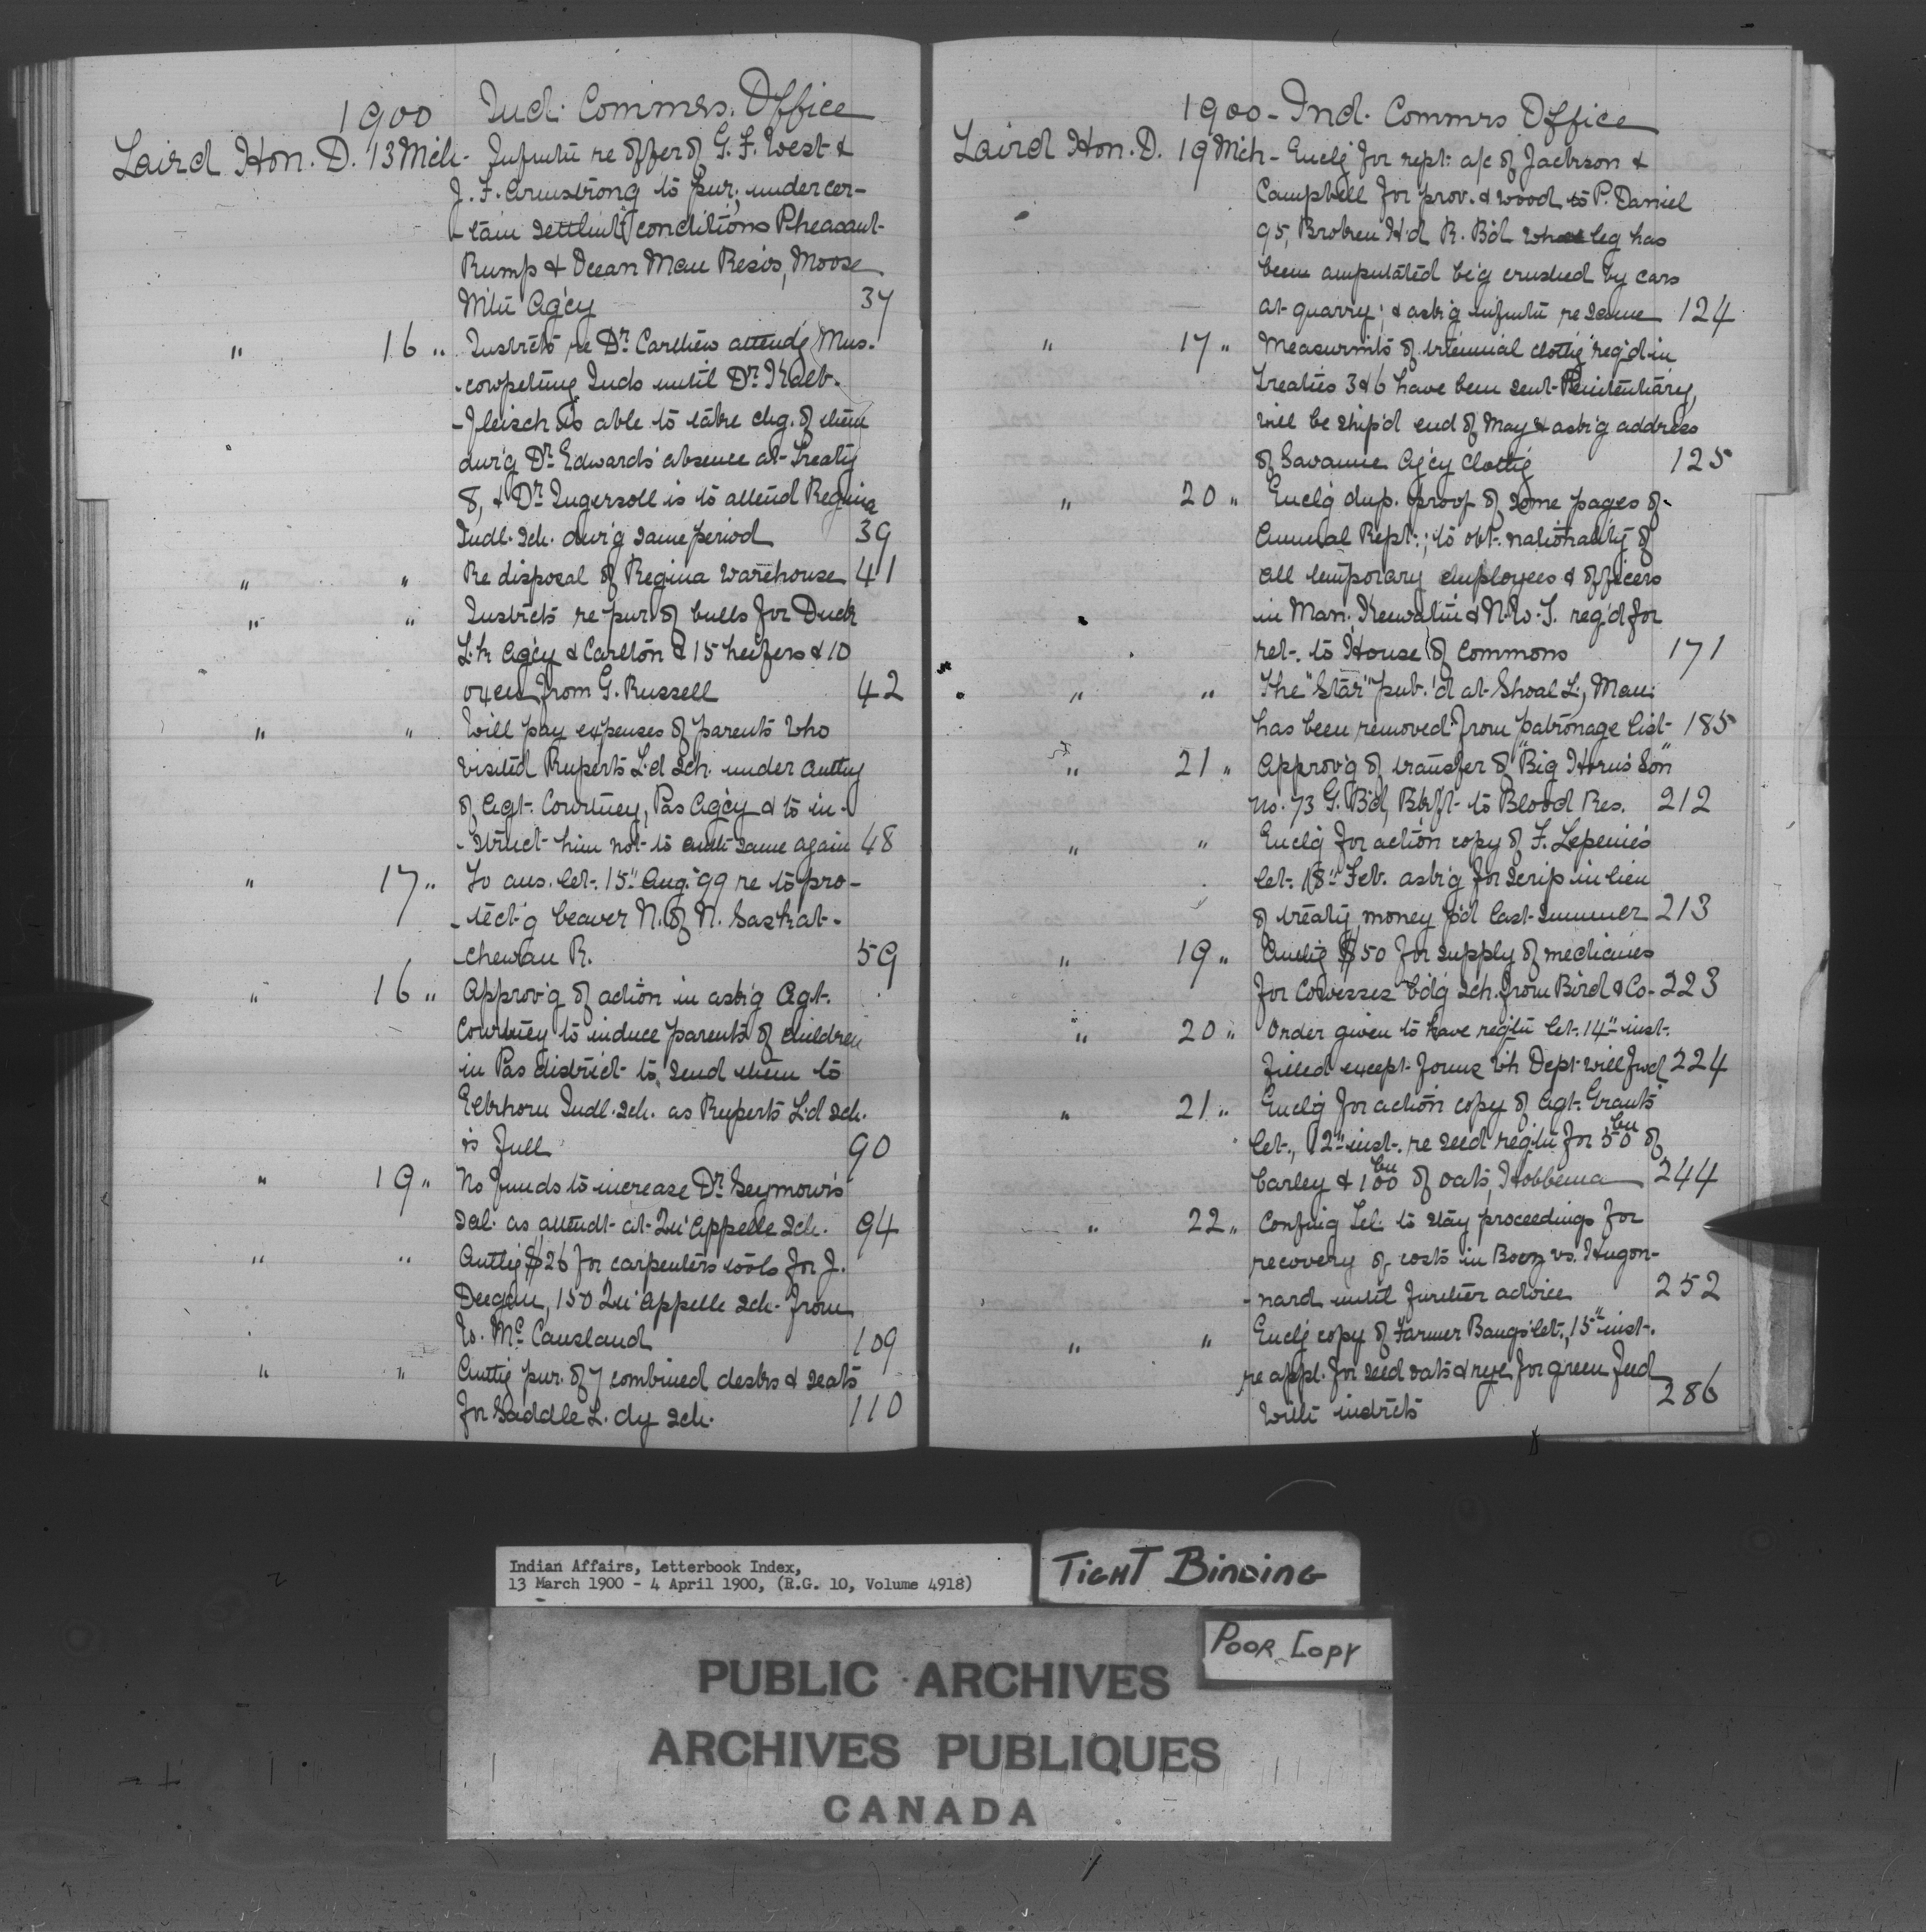 1900 Ind. Commrs. Office
Laird Hon. D. 13 Mch - Infmtn re offer of G. F. West &
J. F. Armstrong to pur; under cer-
-tain settlmt conditions Pheasant-
Rump & Ocean Man Resvs, Moose
Mtn Agcy 37
" 16 " Instrcts re Dr. Carthew attendg Mus-
-cowpetung Inds until Dr. Kalb-
-fleisch is able to take chg. of them
dur'g Dr. Edwards' absence at Treaty
8, & Dr. Ingersoll is to attend Regina
Indl. Sch. dur'g same period 39
" " Re disposal of Regina Warehouse 41
" " Instrcts re pur of bulls for Duck
L. Agcy & Carlton & 15 heifers & 10
oxen from G. Russell 42
" " Will pay expenses of parents who
visited Ruperts L'd Sch. under authy
of Agt. Courtney, Pas Agcy & to in-
-struct him not to same again 48
" 17 " To ans. let. 15" Aug. '99 re to pro-
-tect'g beaver N. of N. Saskat-
-chewan R. 59
" 16 " Approv'g of action in ask'g Agt.
Courtney to induce parents of children
in Pas district to send them to
Elkhorn Indl. Sch. as Ruperts L'd Sch.
is full 90
" 19 " No funds to increase Dr. Seymour's
sal. as attendt at Qu'Appelle Sch. 94
" " Authg $26 for carpenters tools for J.
Deegan, 150 Qu'Appelle Sch. from
McCausland 109
" " Authg pur. of 7 combined desks & seats
for Saddle L. dy Sch. 110
1900 - Ind. Commrs Office
Laird Hon. D. 19 Mch - Enclg for rept. a/c of Jackson &
Campbell for prov. & wood to P. Daniel
95, Broken H'd R. B'd whose leg has
been amputated be'g crushed by cars
at quarry; & ask'g infmtn re same 124
" 17 " Measurmts of triennial clothg req'd in
Treaties 3 & 6 have been sent Penitentiary,
will be ship'd end of May & ask'g address
of Savanne Agcy clothg 125
" 20 " Enclg dup. proof of some pages of
Annual Rept.; to obt. nationality of
all temporary employees & officers
in Man. Keewatin & N.W.T. req'd for
ret. to House of Commons 171
" " The "Star" pub.'d at Shoal L., Man.
has been removed from patronage list 185
" 21 " Approv'g of transfer of "Big Horn's Son"
no. 73 G. B'd, Blkft to Blood Res. 212
" " Enclg for action copy of F. Lepenie's
let. 18" Feb. ask'g for scrip in lieu
of treaty money p'd last summer 213
" 19 " Authg $50 for supply of medicines
for Cowesses b'dg Sch. from Bird & Co - 223
" 20 " Order given to have reqtn let. 14" inst.
filled except forms wh Dept will fwd 224
" 21 " Enclg for action copy of Agt. Grant's
let., 12" inst. re seed reqtn for 50 bu of
barley & 100 bu of oats, Hobbema 244
" 22 " Confmg tel. to stay proceedings for
recovery of costs in vs. Hugon-
-nard until further advice 252
" " Enclg copy of Farmer let., 15" inst.
re appl. for seed oats & rye for green feed
with instrcts 286
Indian Affairs, Letterbook Index,
13 March 1900 - 4 April 1900, (R.G. 10, Volume 4918)
TIGHT BINDING
POOR COPY
PUBLIC ARCHIVES
ARCHIVES PUBLIQUES
CANADA